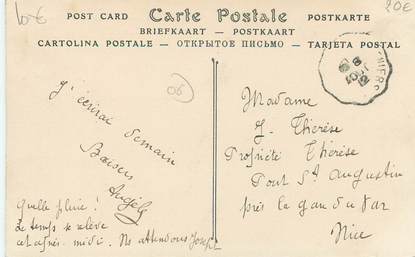 10€
20€
POST CARD Carte Postale POSTKARTE
BRIEFKAART — POSTKAART
CARTOLINA POSTALE — ОТКРЫТОЕ ПИСЬМО — TARJETA POSTAL
06
J'écrirai demain
Baisers
Angèle
Quelle pluie !
Le temps se relève
cet après-midi. Ns attendons Joseph
Madame
J. Thérèse
Propriété Thérèse
Pont St Augustin
près la gare du Var
Nice